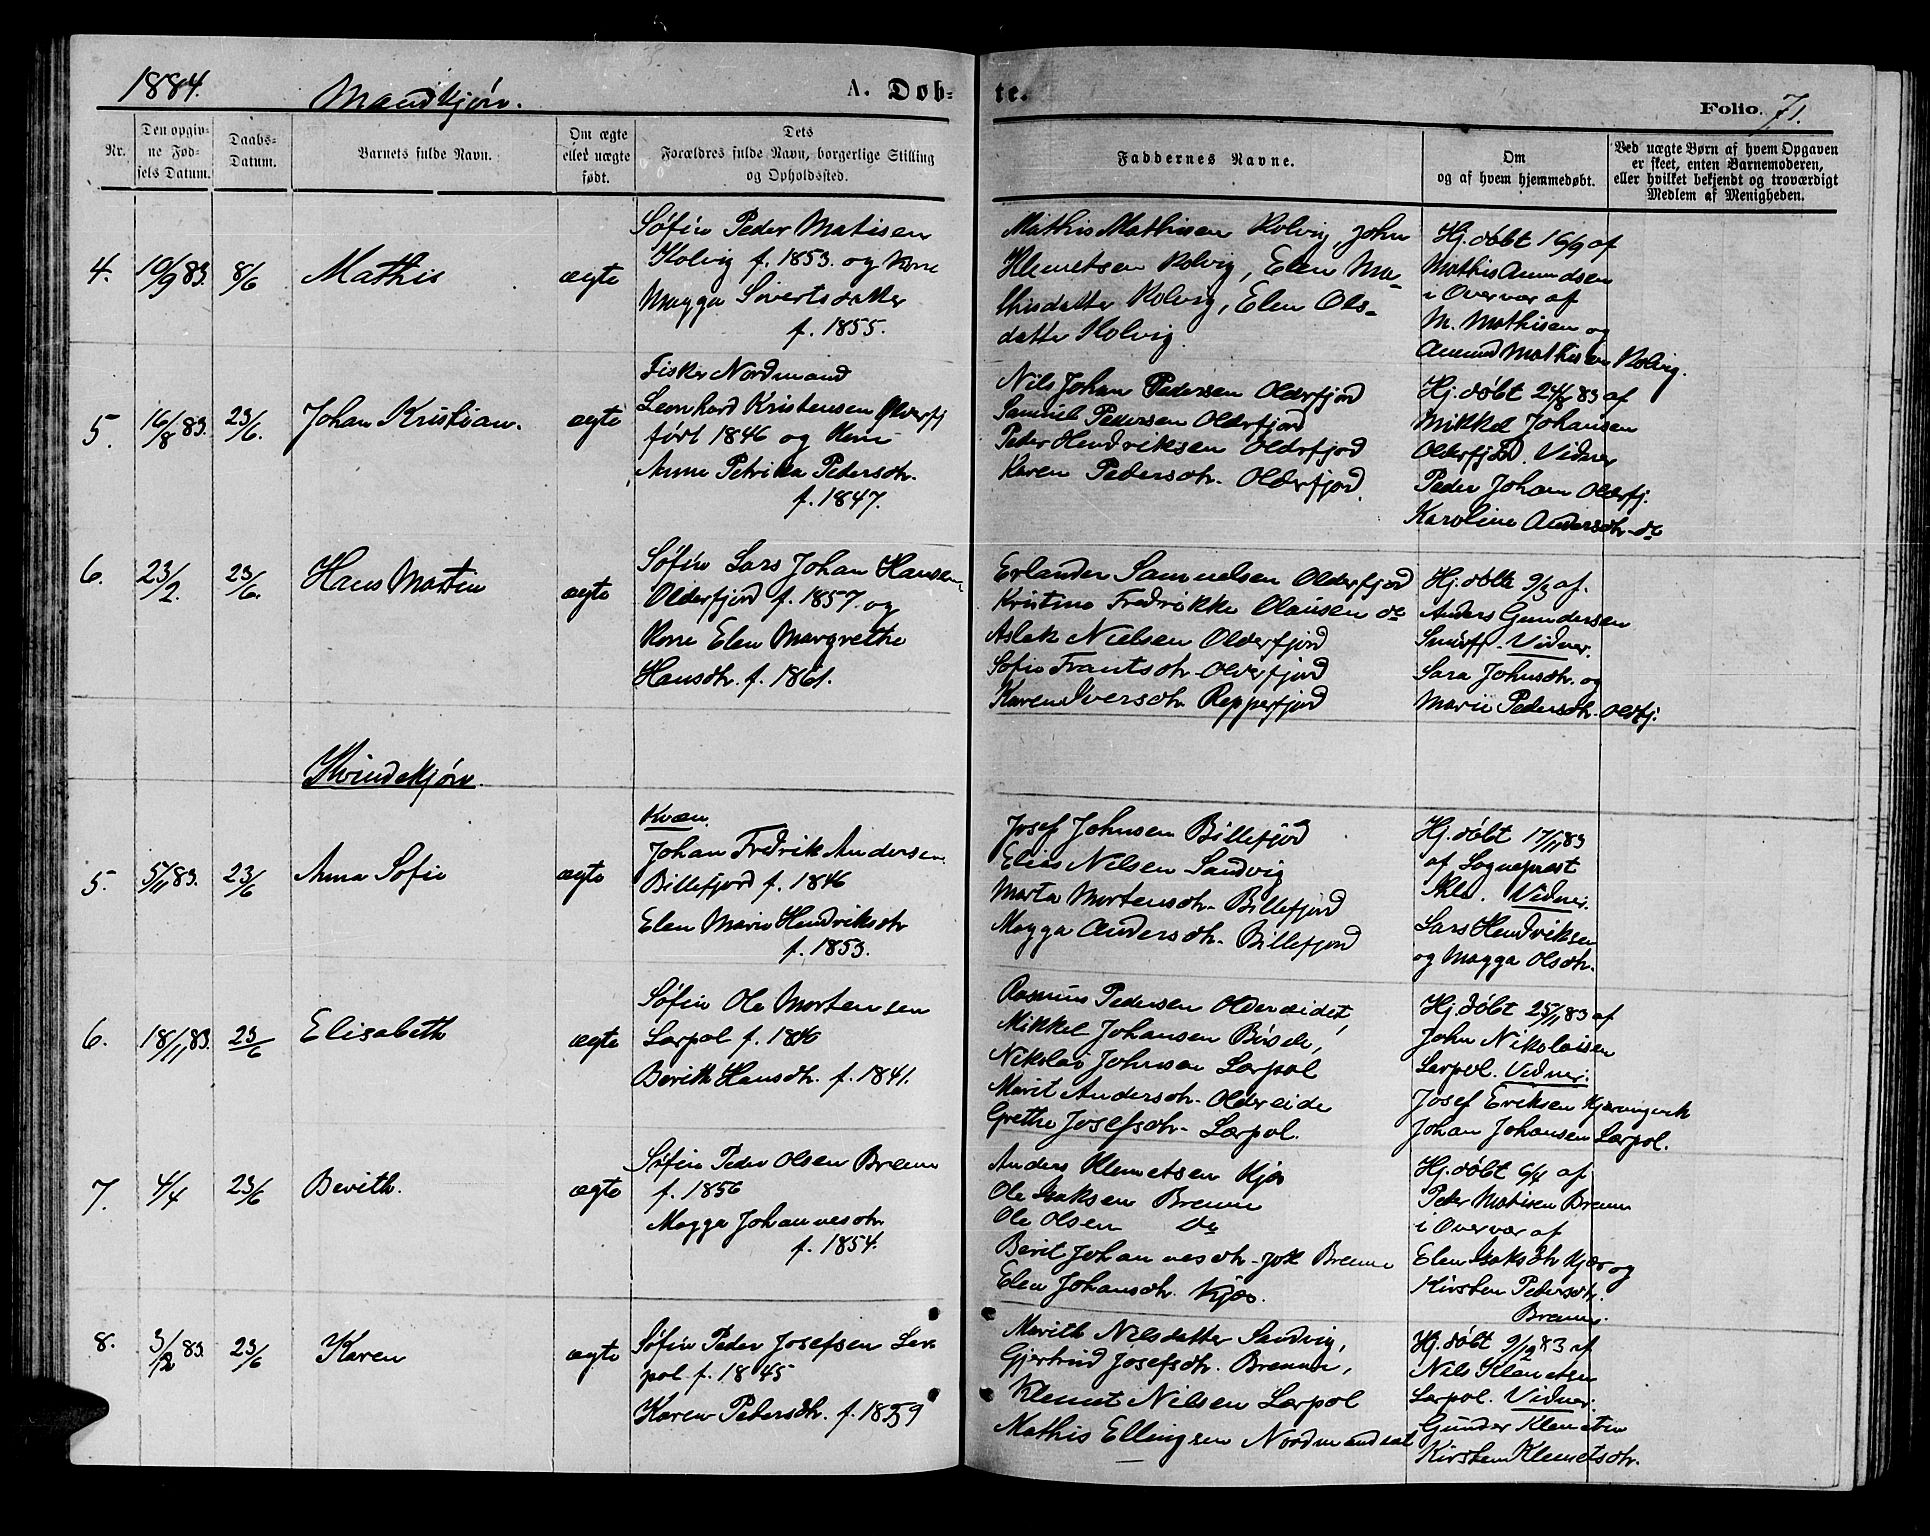 1884.
Mandkjøn.
A. Døb-
te.
Folio. 71.
Nr.
Den opgiv-
ne Fød-
sels Datum.
Daabs-
Datum.
Barnets fulde Navn.
Om ægte
eller uægte
født.
Dets
Forældres fulde Navn, borgerlige Stilling
og Opholdssted.
Faddernes Navne.
Om
og af hvem hjemmedøbt.
Ved uægte Børn af hvem Opgaven
er skeet, enten Barnemoderen,
eller hvilket bekjendt og troværdigt
Medlem af Menigheden.
4.
10/9 83.
8/6
Mathis
ægte
Søfin Peder Matisen
Kolvig f. 1853. og Kone
Magga Sivertsdatter
f. 1855.
Mathis Mathisen Kolvig, John
Klemetsen Kolvig, Elen Ma-
thisdatter Kolvig, Elen Ols-
datter Kolvig.
Hj. døbt 16/9 af
Mathis Amundsen
i Overvær af
M. Mathisen og
Amund Mathisen Kolvig.
5.
16/8 83.
23/6.
Johan Kristian.
ægte
Fisker Nordmand
Leonhard Kristensen Olderfj
født 1846 og Kone
Anne Petrikka Pedersdtr.
f. 1847.
Nils Johan Pedersen Olderfjord
Samuel Pedersen Olderfjord
Peder Hendriksen Olderfjord
Karen Pedersdtr. Olderfjord.
Hj. døbt 24/8 83 af
Mikkel Johansen
Olderfjord. Vidner
Peder Johan Olderfj.
Karoline Andersdtr. do
6.
23/2.
23/6.
Hans Martin
ægte
Søfin Lars Johan Hansen
Olderfjord f. 1857 og
Kone Elen Margrethe
Hansdtr. f. 1861.
Erlander Samuelsen Olderfjord
Kristine Fredrikke Olausen do
Aslak Nielsen Olderfjord
Sofie Frantsdtr. Olderfjord
Karen Iversdtr. Repperfjord
Hj. døbt 9/3 af.
Anders Gundersen
Vidner.
Sara Johnsdtr. og
Marie Pedersdtr. Oldfj.
Kvindekjøn.
5.
5/11 83.
23/6
Anna Sofie
ægte
Kvæn.
Johan Fredrik Andersen
Billefjord f. 1846
Elen Marie Hendriksdtr
f. 1853.
Josef Johnsen Billefjord
Elias Nilsen Sandvig
Marta Mortensdtr. Billefjord
Magga Andersdtr. Billefjord
Hj. døbt 17/11 83
af Sognepræst
Vidner.
Lars Hendriksen
og Magga Olsdtr.
6.
18/11 83.
23/6
Elisabeth
ægte
Søfin Ole Mortensen
Lærpol f. 1846
Berith Hansdtr. f. 1841.
Rasmus Pedersen Oldereidet,
Mikkel Johansen
Nikolai Johnsen Lærpol
Marit Andersdtr. Oldereide
Grethe Josefsdtr. Lærpol.
Hj. døbt 25/11 83 af
John Nikolaisen
Lærpol. Vidner.
Josef Eriksen Kjæringvik
Johan Johansen Lærpol.
7.
4/4
23/6
Berith.
ægte
Søfin Peder Olsen Brenna
f. 1856
Magga Johannesdtr
f. 1854.
Anders Klemetsen Kjæs
Ole Isaksen Brenna
Ole Olsen do
Berit Johannesdtr. Brenna
Elen Johansdtr. Kjæs.
Hj. døbt 6/4 af
Peder Matisen Brenna
i Overvær af
Elen Isaksdtr Kjæs og
Kirsten Pedersdtr.
Brenna.
8.
3/12 83.
23/6
Karen
ægte
Søfin Peder Josefsen Lær
pol f. 1845
Karen Pedersdtr. f. 1859
Marith Nilsdatter Sandvig,
Gjertrud Josefsdtr. Brenna,
Klemet Nilsen Lærpol
Mathis Ellingsen Nordmandset
Hj. døbt 9/12 83 af
Nils Klemetsen
Lærpol. Vidner.
Gunder Klemetsen
Kirsten Klemetsdtr.